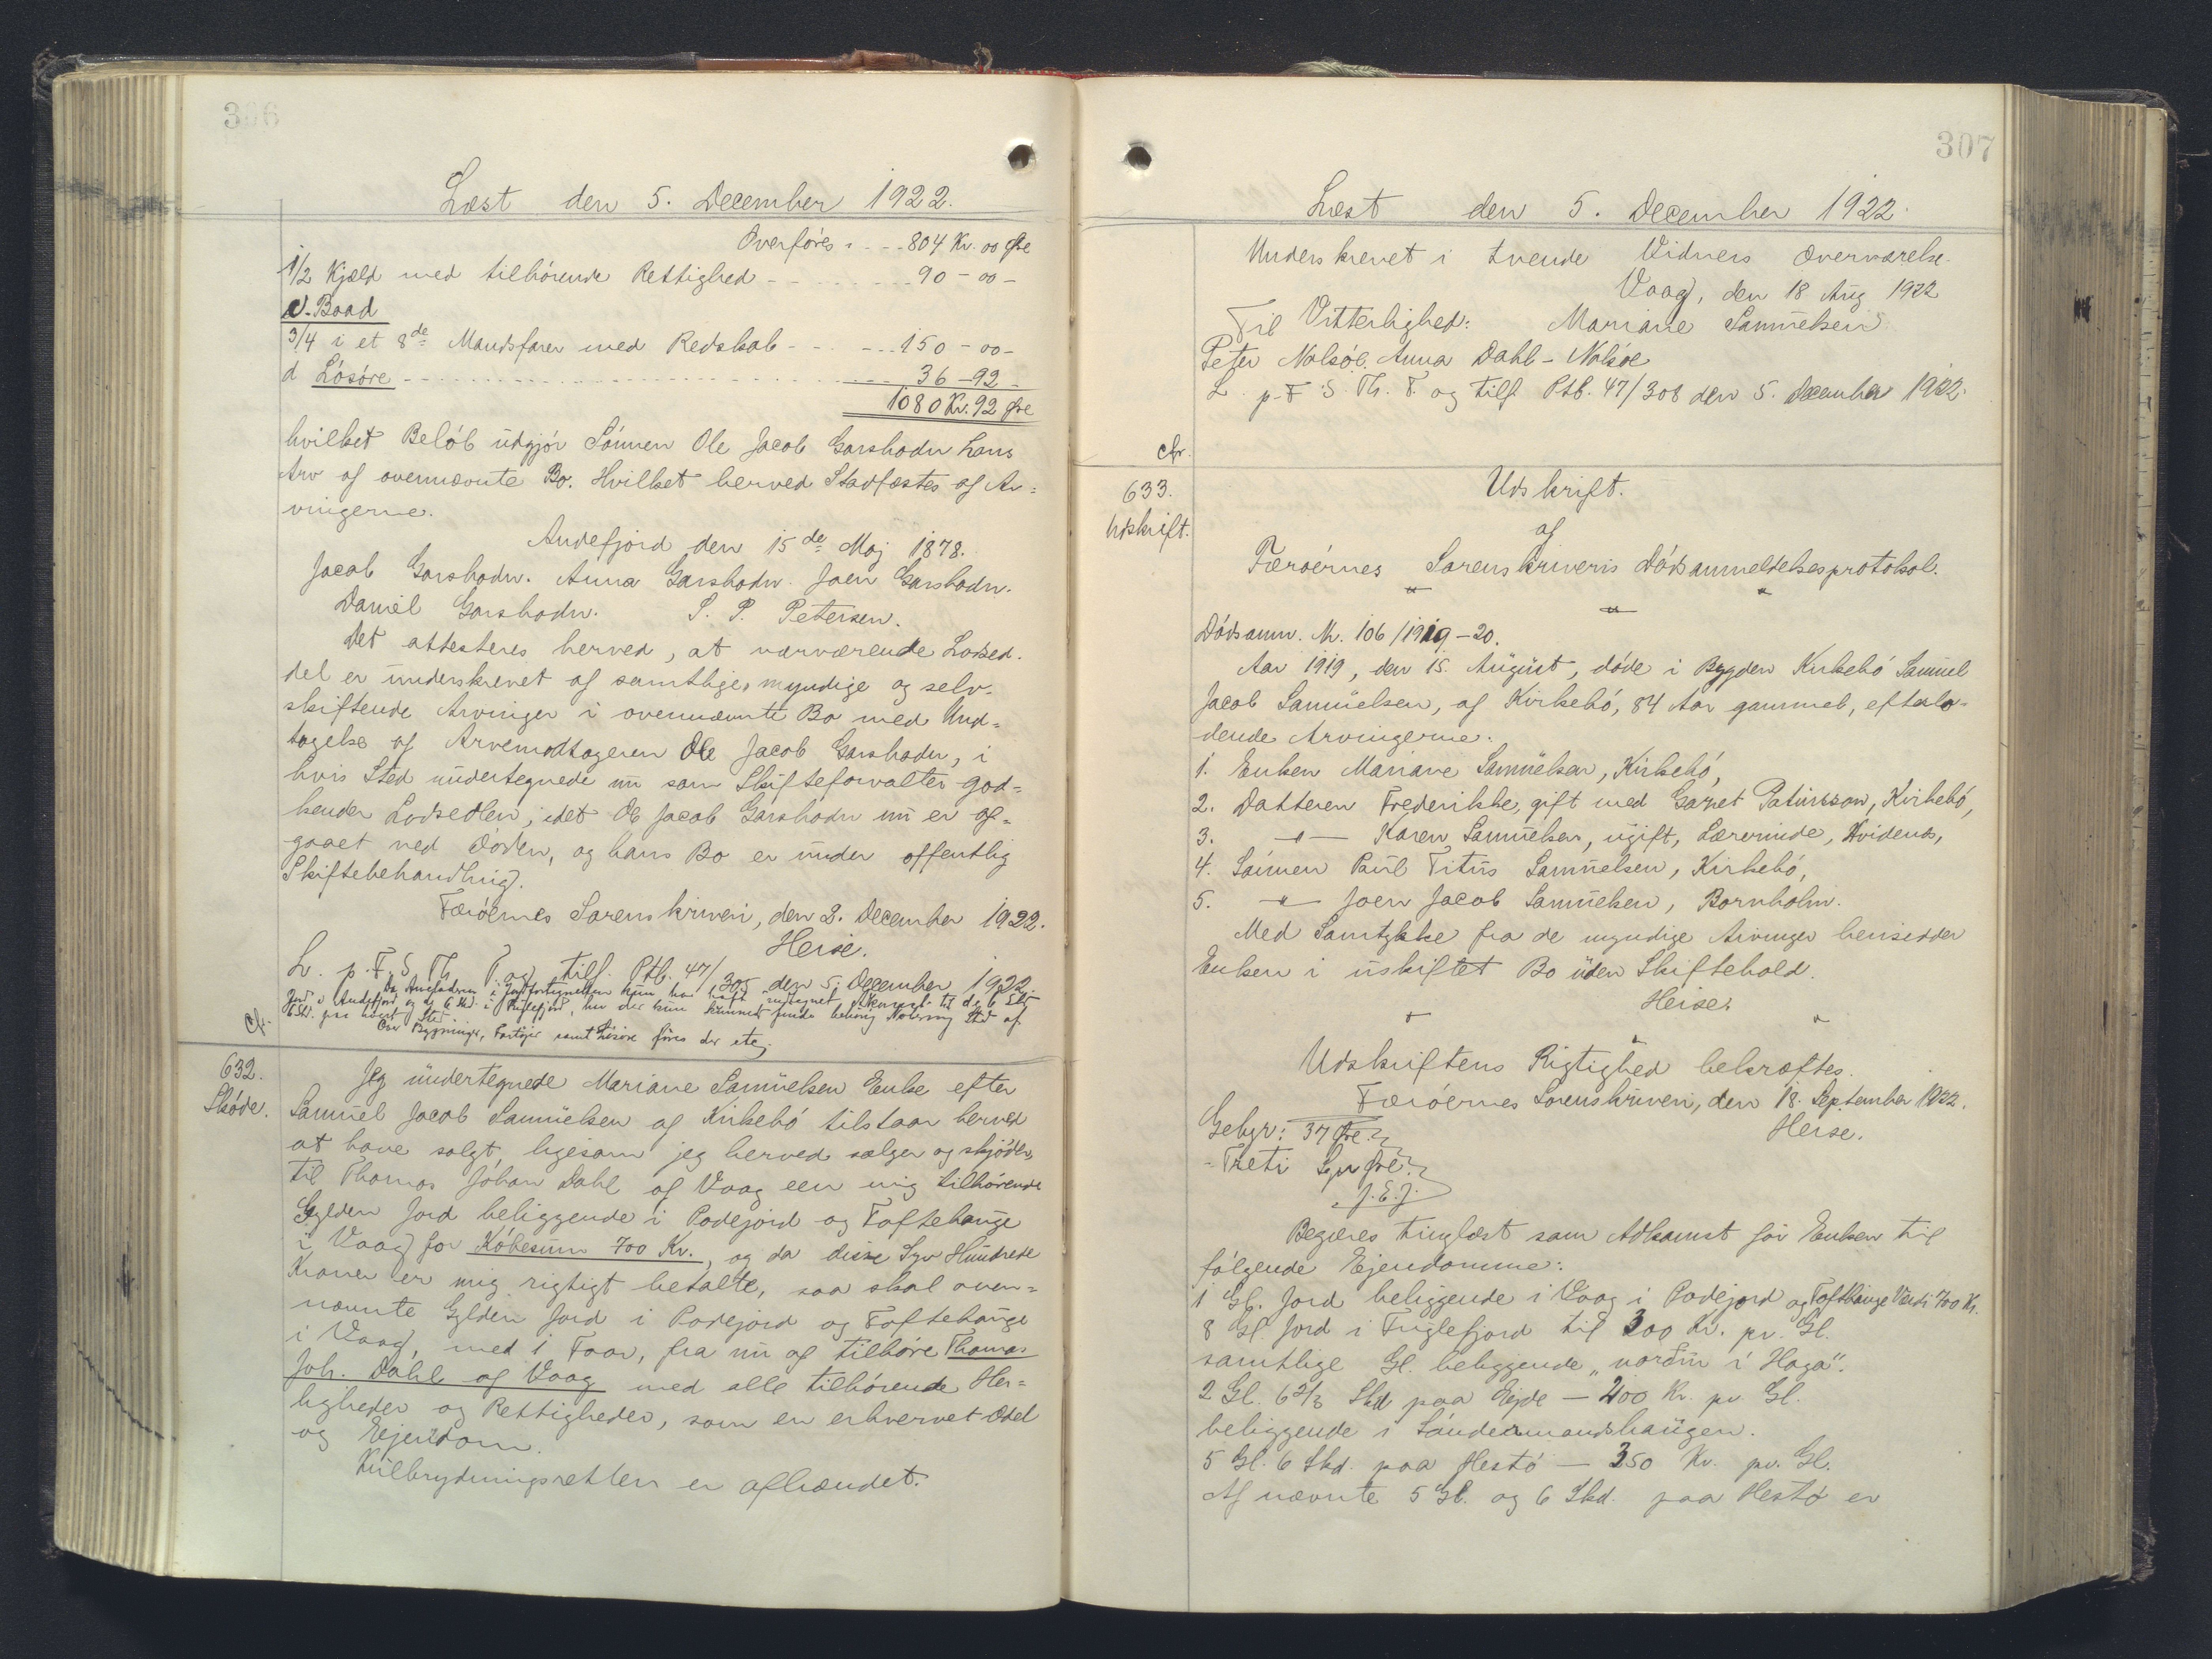 306
Læst den 5. December 1922.
Overføres - - - 804 Kr. 00 Øre
1/2 Kjæld med tilhørende Rettighed - - - - - 90 - 00 -
c. Baad
3/4 i et 8de Mandsfarer med Redskab - - - - 150 - 00 -
d Løsøre - - - - - - - - 36 - 92 -
1080 Kr. 92 Øre
hvilket Beløb udgjør Sønnen Ole Jacob Garshodn hans
Arv af ovennævnte Bo. Hvilket herved Stadfæstes af Ar=
vingerne.
Andefjord den 15de Maj 1878.
Jacob Garshodn. Anna Garshodn. Joen Garshodn.
Daniel Garshodn. S. P. Petersen.
Det attesteres herved, at nærværende Lodsed-
del er underskrevet af samtlige, myndige og selv-
skiftende Arvinger i ovennævnte Bo med Und=
tagelse af Arvemodtageren Ole Jacob Garshodn, i
hvis Sted undertegnede nu som Skifteforvalter god=
kender Lodsedlen, idet Ole Jacob Garshodn nu er af=
gaaet ved Døden, og hans Bo er under offentlig
Skiftebehandling.
Færøernes Sorenskriveri, den 2. December 1922.
Heise.
L. p. F. S. Th. P. og tilf. Ptb. 47/305 den 5. December 1922.
Da Arveladeren i Jordfortegnelsen kun har haft indtegnet Adkomst til de 6 Skd
Jord i Andefjord og af 6 Skd. i Fuglefjord, hu der kun kunnet finde behørig Notering Sted af
6 Skd. paa hvert Sted
Over Bygninger, Fartøjer samt Løsøre føres der etc.
Cfr.
632.
Skøde.
Jeg undertegnede Mariane Samuelsen Enke efter
Samuel Jacob Samuelsen af Kirkebø tilstaar herved
at have solgt, ligesom jeg herved sælger og skjøder,
til Thomas Johan Dahl af Vaag een mig tilhørende
Gylden Jord beliggende i Porejord og Toftehauge
i Vaag for Købesum 700 Kr., og da disse Syv Hundrede
Kroner er mig rigtigt betalte, saa skal oven=
nævnte Gylden Jord i Porejord og Toftehauge
i Vaag, med 1 Faar, fra nu af tilhøre Thomas
Joh. Dahl af Vaag med alle tilhørende Her=
ligheder og Rettigheder, som en erhvervet Odel
og Ejendom.
Kulbrydningsretten er afhændet.
307
Læst den 5. December 1922.
Underskrevet i tvende Vidners Overværelse.
Vaag, den 18 Aug 1922
Til Vitterlighed: Mariane Samuelsen
Peter Nolsøe. Anna Dahl - Nolsøe
L. p. F. S. Th. F. og tilf. Ptb. 47/308 den 5. December 1922.
cfr.
633.
Udskrift.
Udskrift.
af
Færøernes Sorenskriveris Dødsanmeldelsesprotokol.
Dødsanm. Nr. 106/1919-20.
Aar 1919, den 15. August, døde i Bygden Kirkebø Samuel
Jacob Samuelsen, af Kirkebø, 84 Aar gammel, efterla-
dende Arvingerne:
1. Enken Mariane Samuelsen, Kirkebø,
2. Datteren Frederikke, gift med Gazet Patursson, Kirkebø,
3. - " - Karen Samuelsen, ugift, Lærerinde, Hvidenæs,
4. Sønnen Paul Titus Samuelsen, Kirkebø,
5. - " - Joen Jacob Samuelsen, Bornholm.
Med Samtykke fra de myndige Arvinger hensidder
Enken i uskiftet Bo uden Skiftehold.
Heise.
Udskriftens Rigtighed bekræftes.
Færøernes Sorenskriveri, den 18. September 1922.
Heise.
Gebyr: 37 Øre.
- Treti Syv Øre.
J. E. J.
Begæres tinglæst som Adkomst for Enken til
følgende Ejendomme:
1 Gl. Jord beliggende i Vaag i Porejord og Toftehauge Værdi 700 Kr.
8 Gl. Jord i Fuglefjord til 300 Kr. pr. Gl.
samtlige Gl. beliggende "norðuri i Haga".
2 Gl. 6 2/3 Skd paa Ejde - 400 Kr. pr Gl.
beliggende i Søndermandshaugen.
5 Gl. 6 Skd. paa Hestø - 350 Kr. pr. Gl.
Af nævnte 5 Gl. og 6 Skd. paa Hestø er